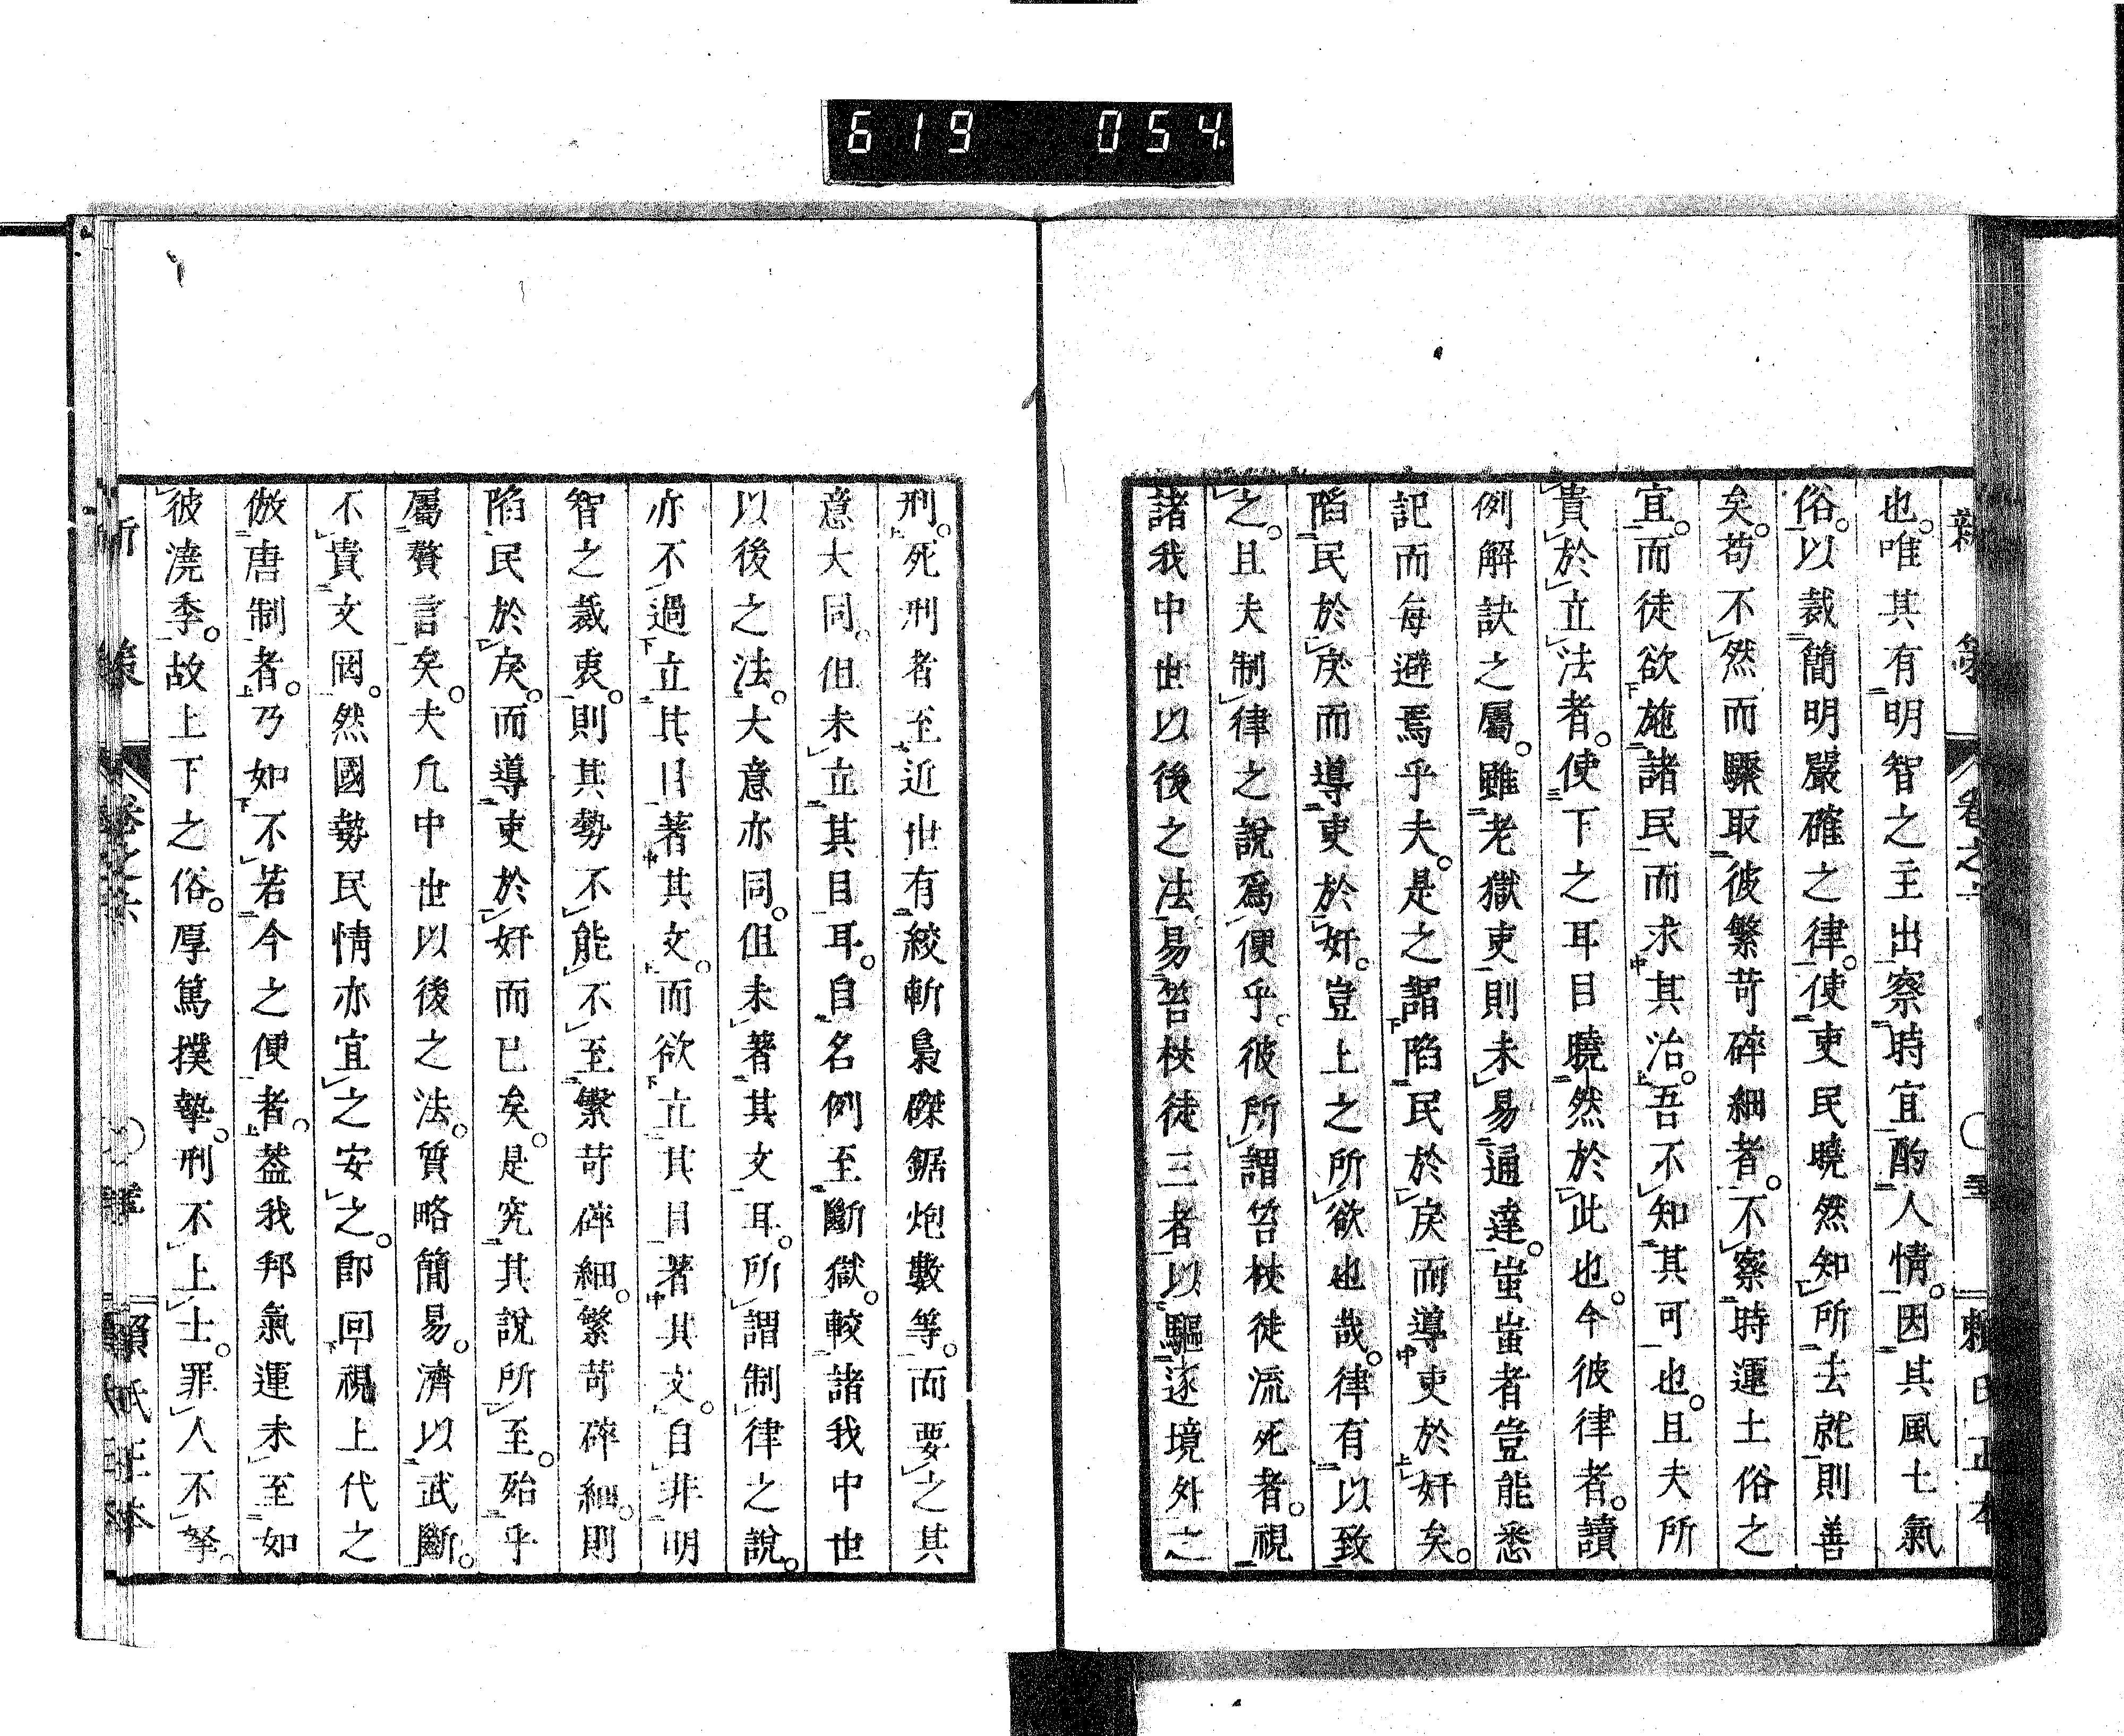 619 054
新策 卷之六 ○ 頼氏正本
也。唯其有明智之主出察時宜酌人情。因其風土氣
俗。以裁簡明嚴確之律。使吏民曉然知所去就則善
矣。苟不然而驟取彼繁苛碎細者。不察時運土俗之
宜。而徒欲施諸民而求其治。吾不知其可也。且夫所
貴於立法者。使下之耳目曉然於此也。今彼律者。讀
例解訣之屬。雖老獄吏則未易通達。蚩蚩者豈能悉
記而每避焉乎夫。是之謂陷民於戾而導吏於奸矣。
陷民於戾而導吏於奸。豈上之所欲也哉。律有以致
之。且夫制律之說爲便乎。彼所謂笞杖徒流死者。視
諸我中世以後之法易笞杖徒三者以驅逐境外之
刑。死刑者至近世有絞斬梟磔鋸炮數等。而要之其
意大同。但未立其目耳。自名例至斷獄。較諸我中世
以後之法。大意亦同。但未著其文耳。所謂制律之說。
亦不過立其目著其文。而欲立其目著其文。自非明
智之裁衷。則其勢不能不至繁苛碎細。繁苛碎細。則
陷民於戾。而導吏於奸而已矣。是究其說所至。殆乎
屬贅言矣。夫凡中世以後之法。質略簡易。濟以武斷。
不貴文罔。然國勢民情亦宜之安之。卽回視上代之
倣唐制者。乃如不若今之便者。葢我邦氣運未至如
彼澆季。故上下之俗。厚篤撲摯。刑不上士。罪人不孥。
新策 卷之六 ○ 頼氏正本